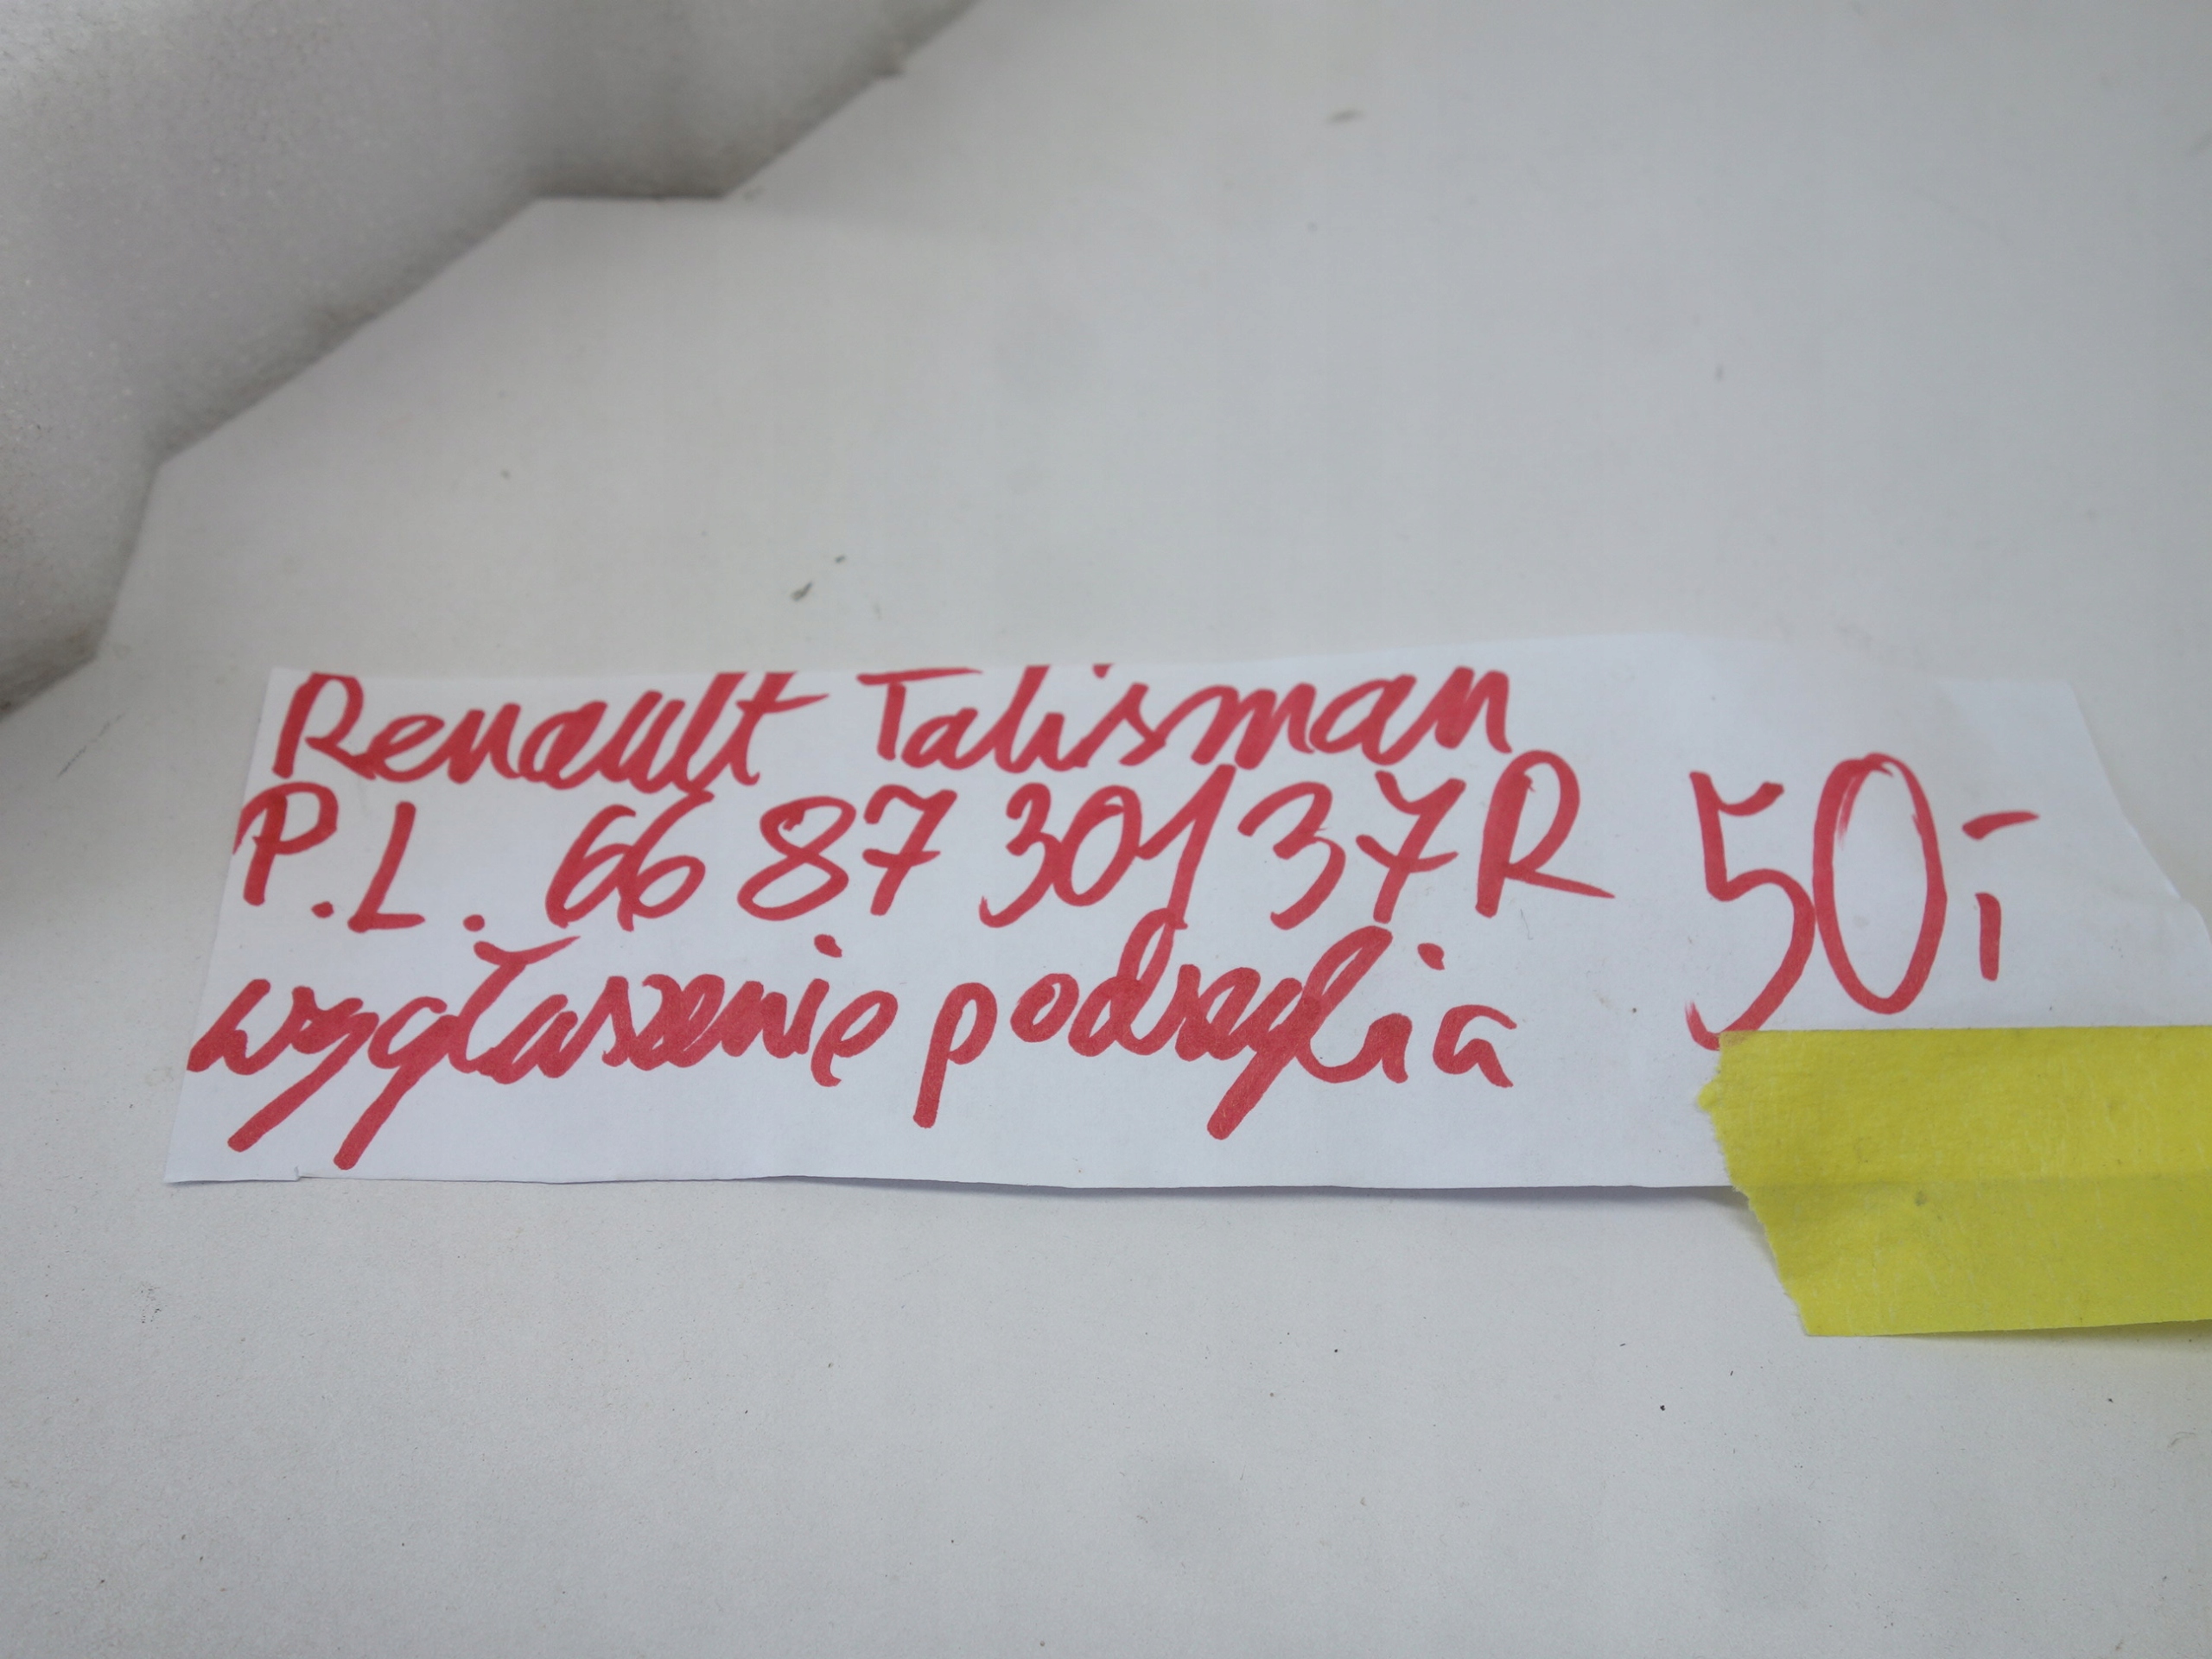 Renault Talisman
P.L. 66 87 301 37R 50,-
wygłuszenie podszybia